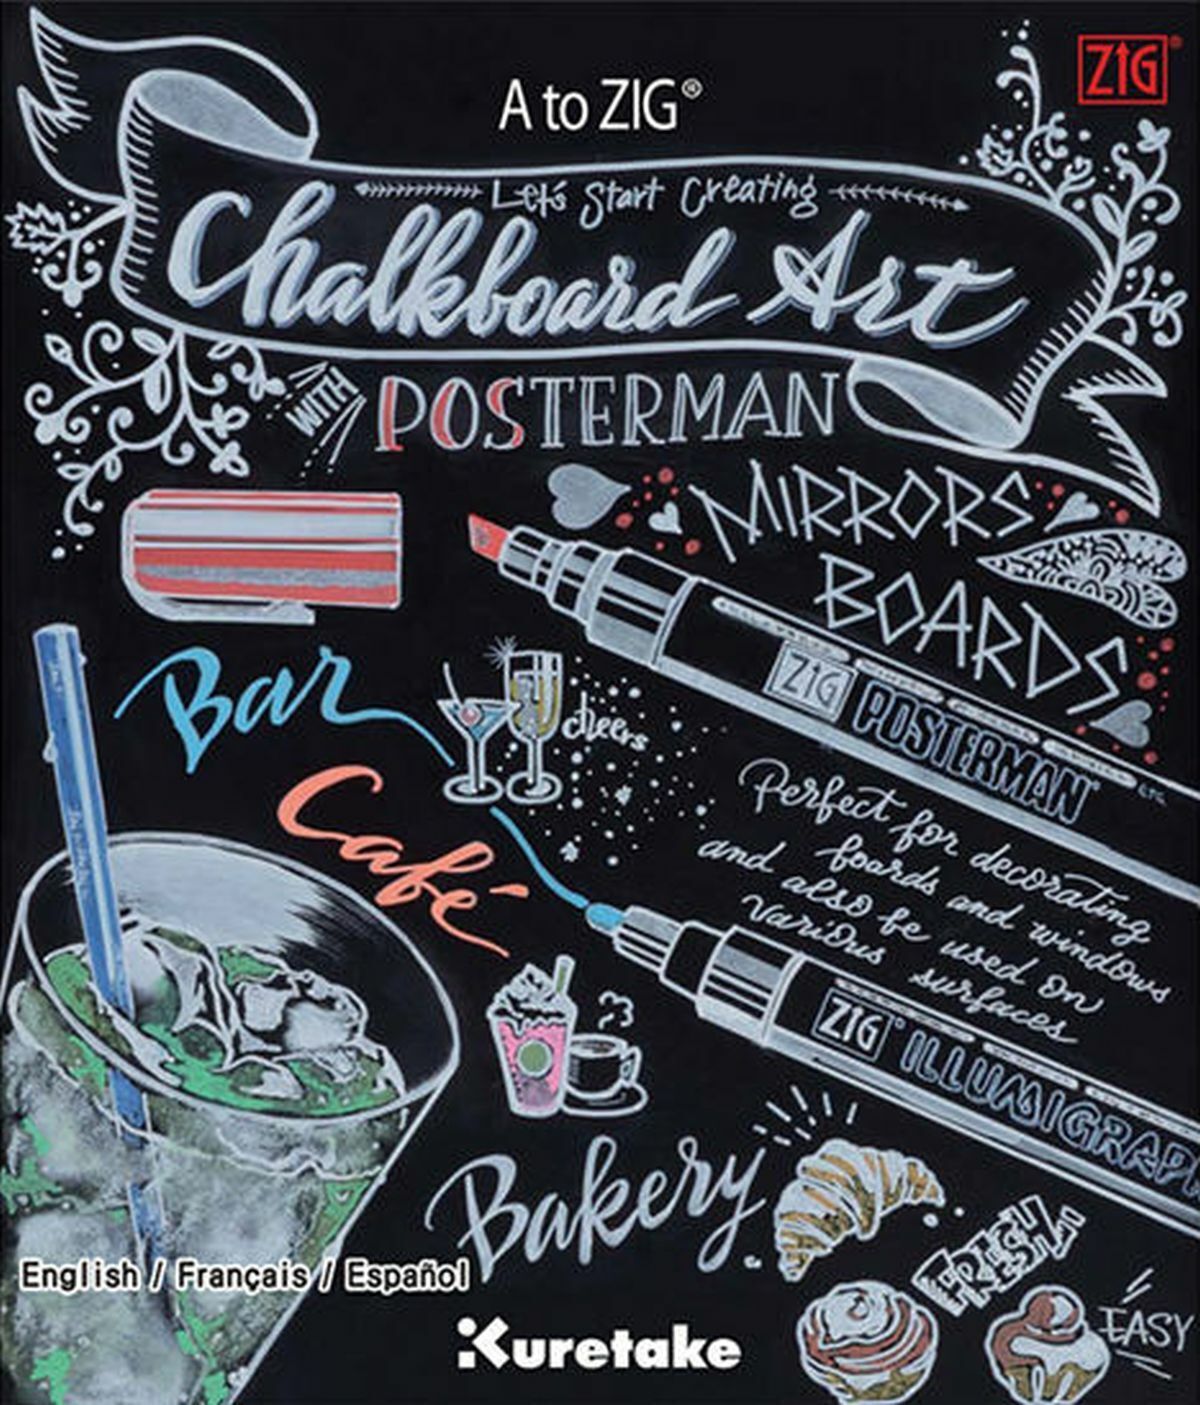 A to ZIG®
ZIG®
Let's Start Creating
Chalkboard Art
WITH
POSTERMAN
MIRRORS
BOARDS
ZIG
POSTERMAN®
Bar
cheers
Café
Perfect for decorating
boards and windows
and also be used on
various surfaces
ZIG®
ILLUMIGRAPH
Bakery
FRESH
EASY
English / Français / Español
Kuretake